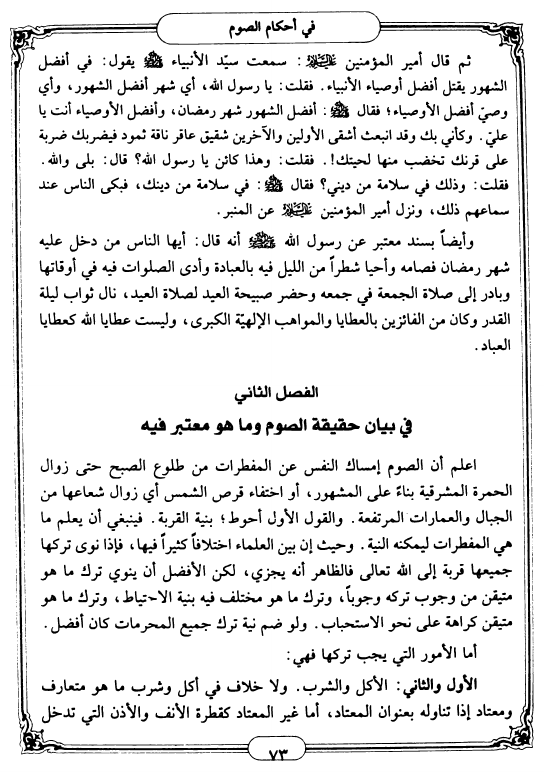 في أحكام الصوم
ثم قال أمير المؤمنين عليه السلام: سمعت سيّد الأنبياء ﷺ يقول: في أفضل
الشهور يقتل أفضل أوصياء الأنبياء. فقلت: يا رسول الله، أي شهر أفضل الشهور، وأي
وصيّ أفضل الأوصياء؛ فقال ﷺ: أفضل الشهور شهر رمضان، وأفضل الأوصياء أنت يا
عليّ. وكأني بك وقد انبعث أشقى الأولين والآخرين شقيق عاقر ناقة ثمود فيضربك ضربة
على قرنك تخضب منها لحيتك!. فقلت: وهذا كائن يا رسول الله؟ قال: بلى والله.
فقلت: وذلك في سلامة من ديني؟ فقال ﷺ: في سلامة من دينك، فبكى الناس عند
سماعهم ذلك، ونزل أمير المؤمنين عليه السلام عن المنبر.
وأيضاً بسند معتبر عن رسول الله ﷺ أنه قال: أيها الناس من دخل عليه
شهر رمضان فصامه وأحيا شطراً من الليل فيه بالعبادة وأدى الصلوات فيه في أوقاتها
وبادر إلى صلاة الجمعة في جمعه وحضر صبيحة العيد لصلاة العيد، نال ثواب ليلة
القدر وكان من الفائزين بالعطايا والمواهب الإلهيّة الكبرى، وليست عطايا الله كعطايا
العباد.
الفصل الثاني
في بيان حقيقة الصوم وما هو معتبر فيه
اعلم أن الصوم إمساك النفس عن المفطرات من طلوع الصبح حتى زوال
الحمرة المشرقية بناءً على المشهور، أو اختفاء قرص الشمس أي زوال شعاعها من
الجبال والعمارات المرتفعة. والقول الأول أحوط؛ بنية القربة. فينبغي أن يعلم ما
هي المفطرات ليمكنه النية. وحيث إن بين العلماء اختلافاً كثيراً فيها، فإذا نوى تركها
جميعها قربة إلى الله تعالى فالظاهر أنه يجزي، لكن الأفضل أن ينوي ترك ما هو
متيقن من وجوب تركه وجوباً، وترك ما هو مختلف فيه بنية الاحتياط، وترك ما هو
متيقن كراهة على نحو الاستحباب. ولو ضم نية ترك جميع المحرمات كان أفضل.
أما الأمور التي يجب تركها فهي:
الأول والثاني: الأكل والشرب. ولا خلاف في أكل وشرب ما هو متعارف
ومعتاد إذا تناوله بعنوان المعتاد، أما غير المعتاد كقطرة الأنف والأذن التي تدخل
٧٣